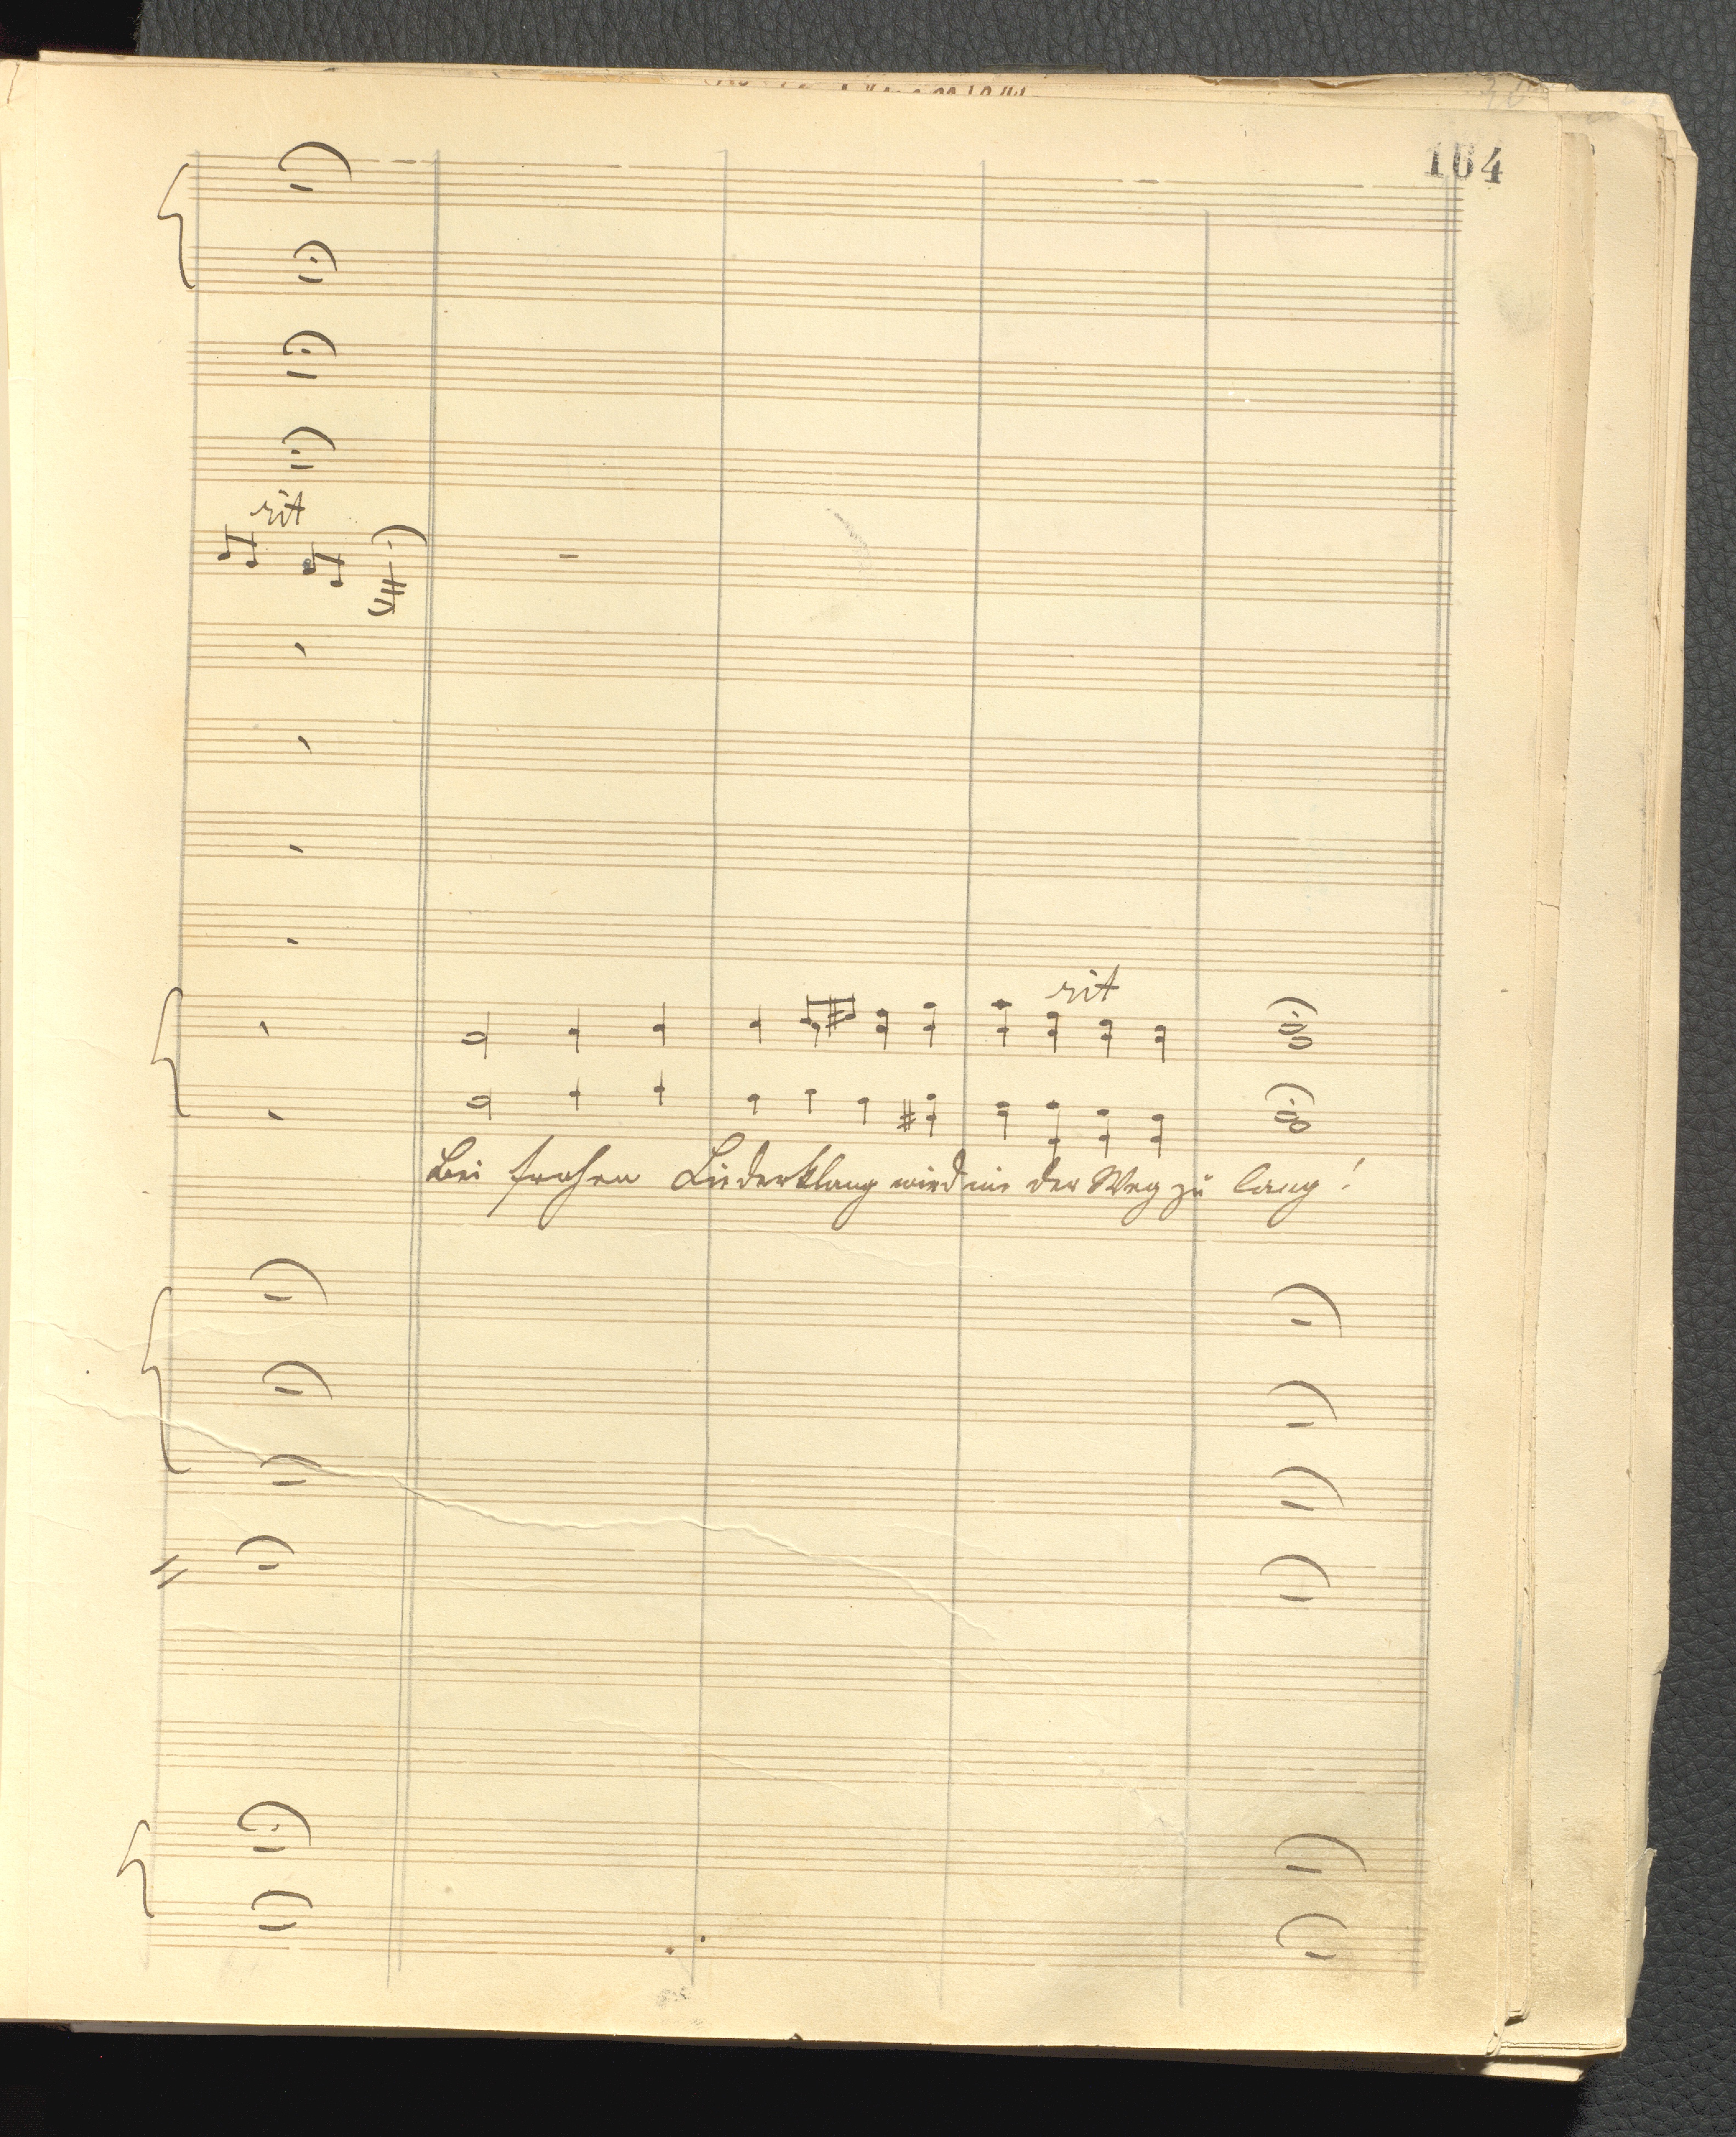 164
rit
rit
Bei frohen Liederklang wird nie der Weg zu lang!